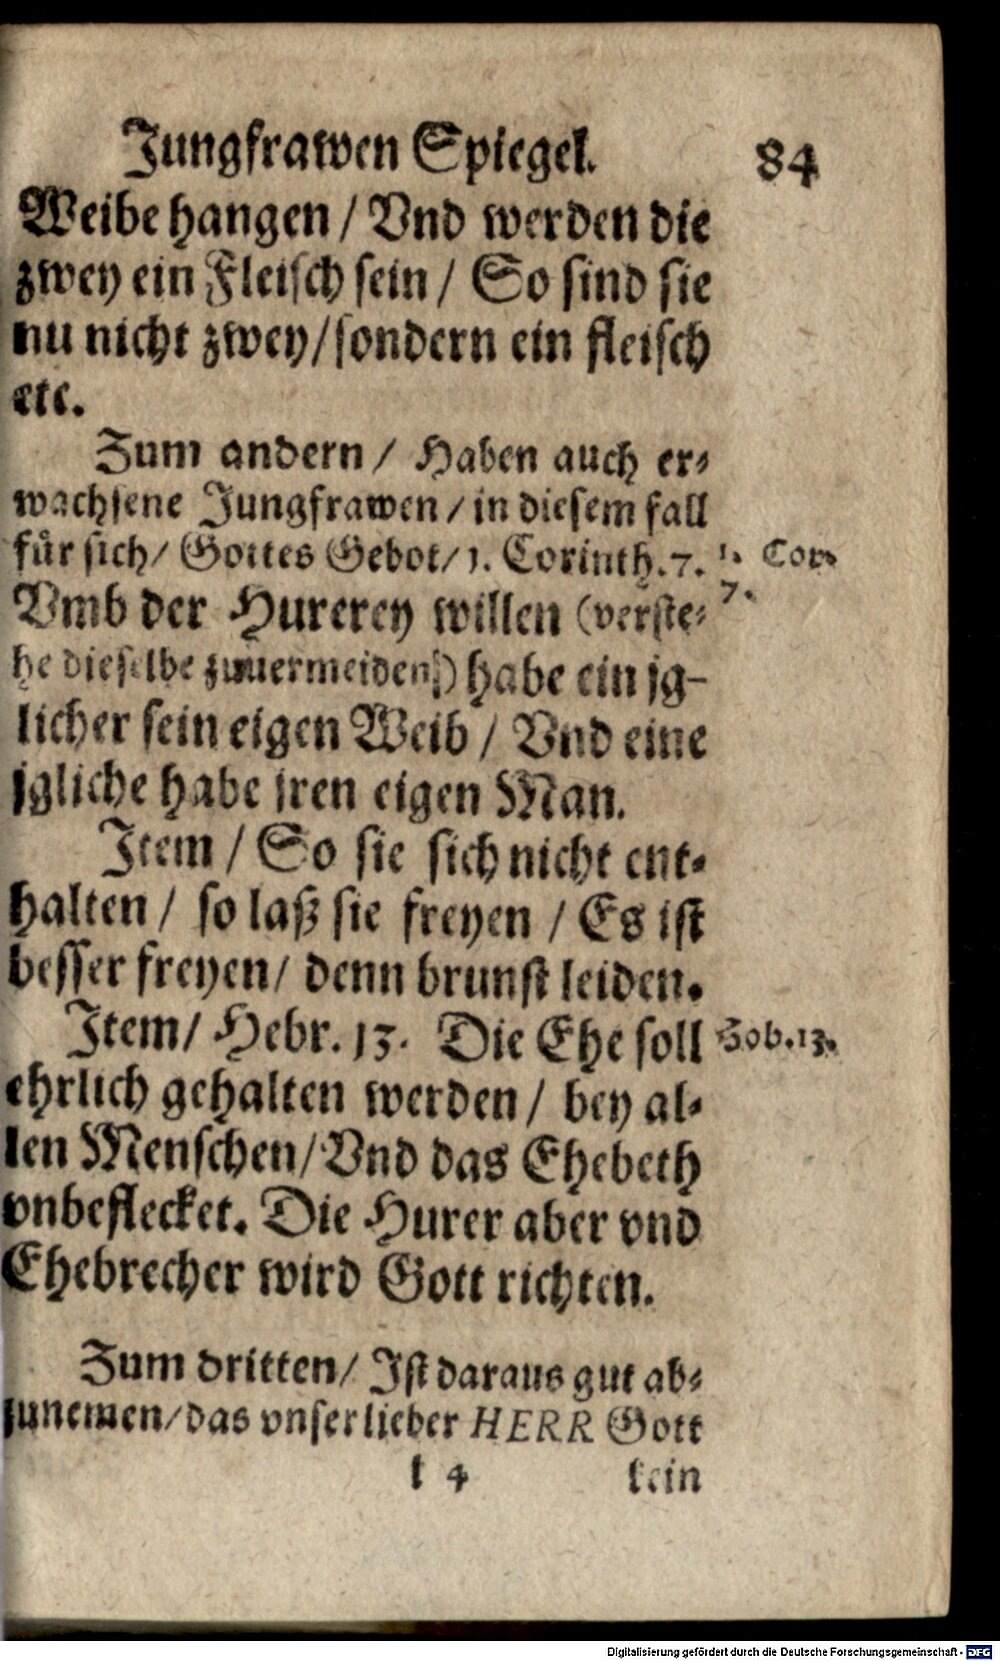 Jungfrawen Spiegel. 84
Weibe hangen / Vnd werden die
zwey ein Fleisch sein / So sind sie
nu nicht zwey/sondern ein fleisch
etc.
Zum andern / Haben auch er-
wachsene Jungfrawen / in diesem fall
für sich/ Gottes Gebot/ 1. Corinth. 7. 1. Cor.
7.
Vmb der Hurerey willen (verste-
he dieselbe zuuermeiden) habe ein jg-
licher sein eigen Weib / Vnd eine
jgliche habe jren eigen Man.
Item / So sie sich nicht ent-
halten / so laß sie freyen / Es ist
besser freyen/ denn brunst leiden.
Item/ Hebr. 13. Die Ehe soll Hob. 13.
ehrlich gehalten werden / bey al-
len Menschen/Vnd das Ehebeth
vnbeflecket. Die Hurer aber vnd
Ehebrecher wird Gott richten.
Zum dritten/ Ist daraus gut ab-
zunemen/das vnser lieber HERR Gott
k 4 kein
Digitalisierung gefördert durch die Deutsche Forschungsgemeinschaft - DFG